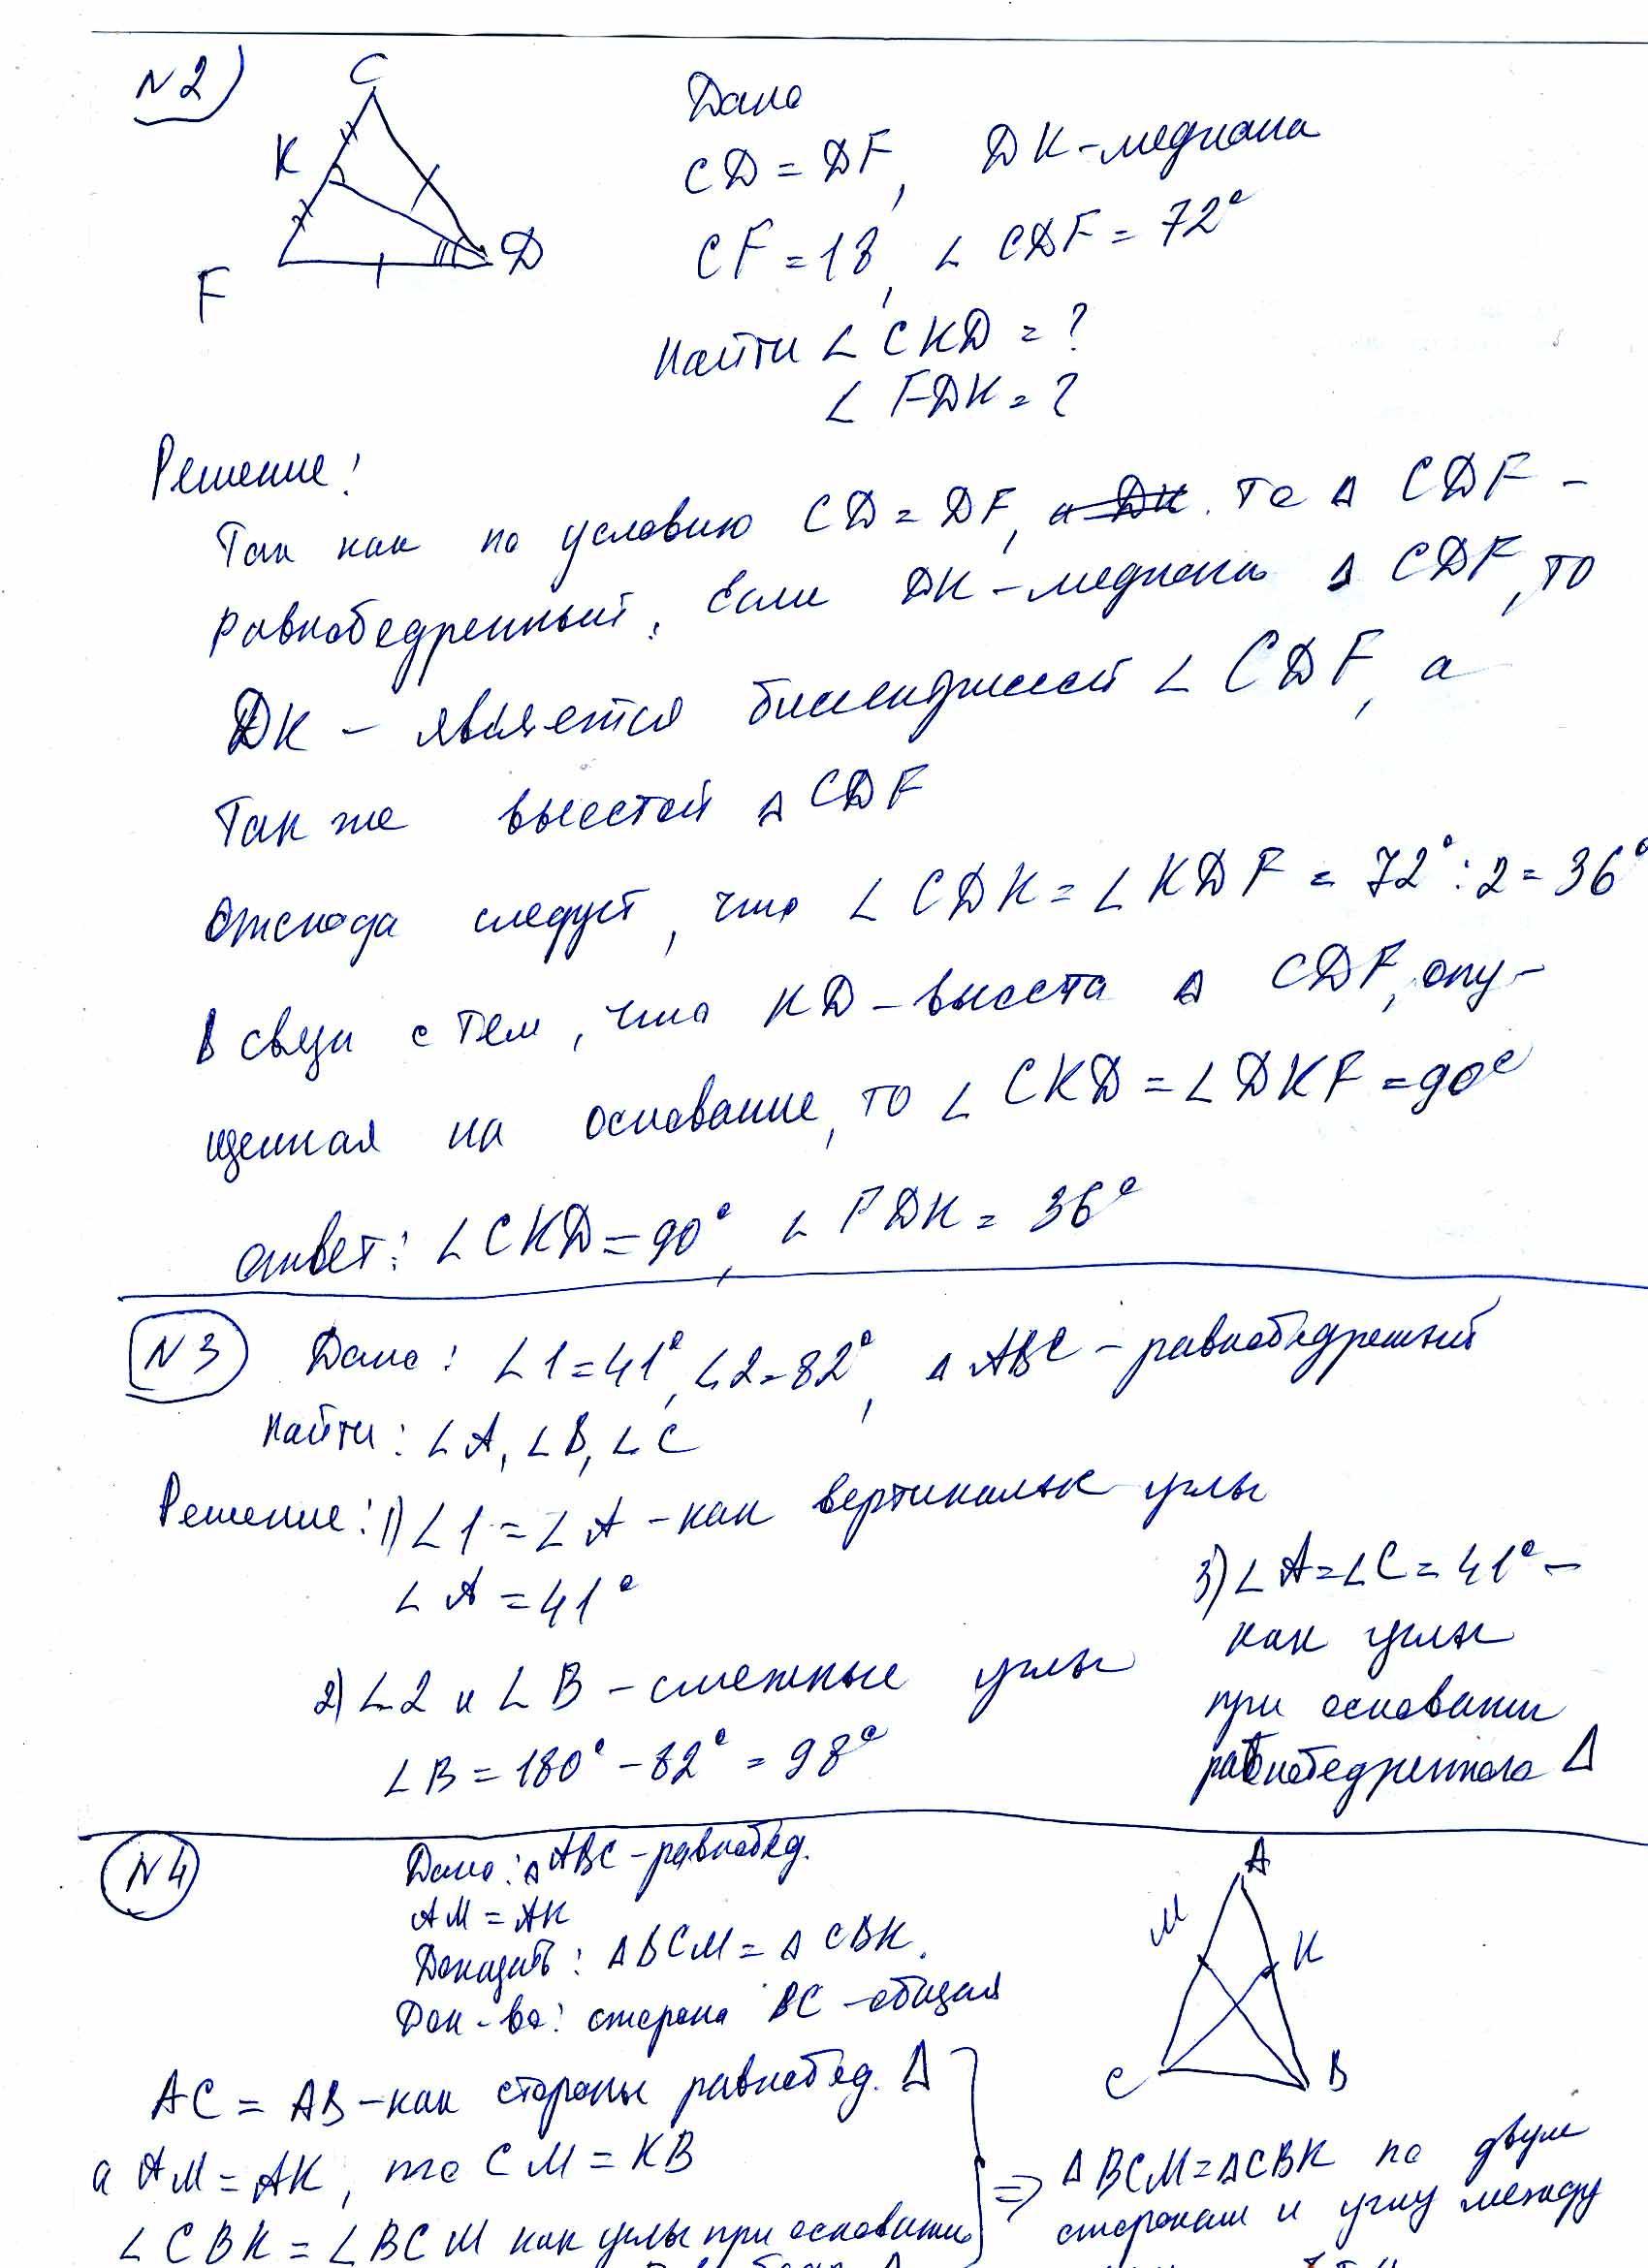 N2)
C
K
F
D
Дано
CD = DF, DK-медиана
CF = 18, ∠ CDF = 72°
Найти ∠ CKD = ?
∠ FDK = ?
Решение:
Так как по условию CD = DF, а DK. То Δ CDF -
равнобедренный, Если DK - медиана Δ CDF, то
DK - является биссектрисой ∠ CDF, а
так же высотой Δ CDF
Отсюда следует, что ∠ CDK = ∠ KDF = 72° : 2 = 36°
В связи с тем, что KD - высота Δ CDF, опу-
щенная на основание, то ∠ CKD = ∠ DKF = 90°
ответ: ∠ CKD = 90°, ∠ FDK = 36°
N3 Дано: ∠1 = 41°, ∠2 = 82°, Δ ABC - равнобедренный
Найти: ∠ A, ∠ B, ∠ C
Решение: 1) ∠1 = ∠ A - как вертикальные углы
∠ A = 41°
2) ∠2 и ∠ B - смежные углы
∠ B = 180° - 82° = 98°
3) ∠ A = ∠ C = 41° -
как углы
при основании
равнобедренного Δ
N4
Дано: Δ ABC - равнобед.
AM = AK
Доказать: Δ BCM = Δ CBK.
Док-во: сторона BC - общая
A
M
K
C
B
AC = AB - как стороны равнобед. Δ
а AM = AK, то CM = KB
∠ CBK = ∠ BCM как углы при основании
=> Δ BCM = Δ CBK по двум
сторонам и углу между